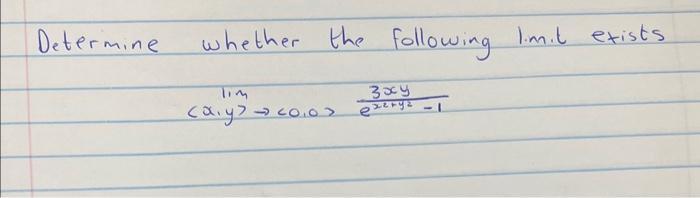 Determine whether the following limit exists
lim 3xy
(x,y) → (0,0) e^{x²+y²} - 1